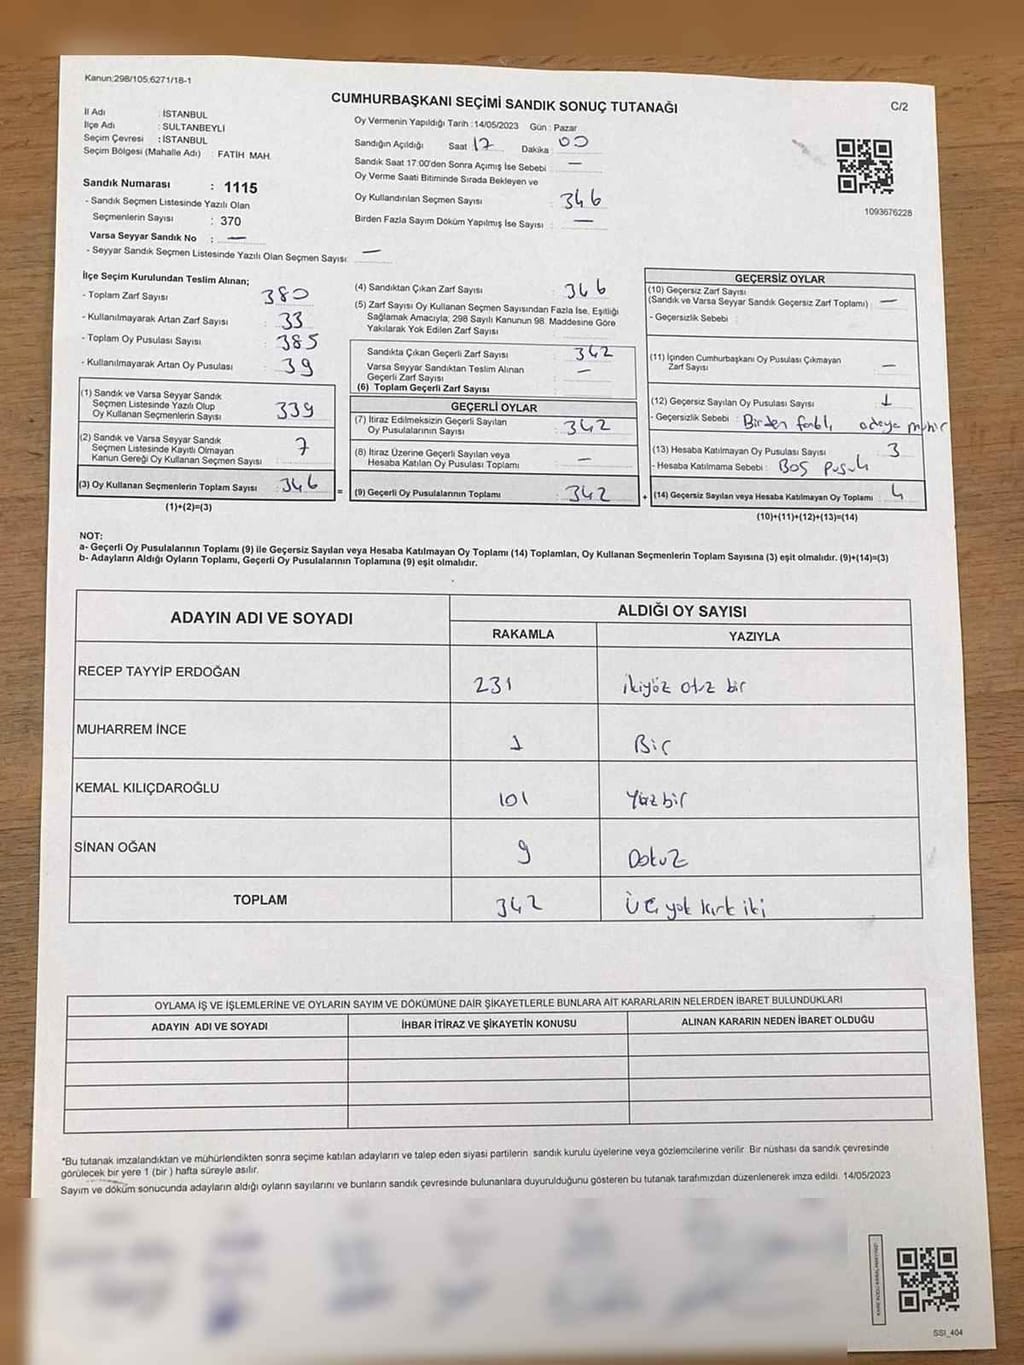 Kanun:298/105;6271/18-1
CUMHURBAŞKANI SEÇİMİ SANDIK SONUÇ TUTANAĞI
C/2
İl Adı : İSTANBUL
İlçe Adı : SULTANBEYLİ
Seçim Çevresi : İSTANBUL
Seçim Bölgesi (Mahalle Adı) : FATİH MAH.
Sandık Numarası : 1115
- Sandık Seçmen Listesinde Yazılı Olan
Seçmenlerin Sayısı : 370
Varsa Seyyar Sandık No : —
- Seyyar Sandık Seçmen Listesinde Yazılı Olan Seçmen Sayısı: —
Oy Vermenin Yapıldığı Tarih : 14/05/2023 Gün : Pazar
Sandığın Açıldığı Saat 17 Dakika 00
Sandık Saat 17:00'den Sonra Açımış İse Sebebi : —
Oy Verme Saati Bitiminde Sırada Bekleyen ve
Oy Kullandırılan Seçmen Sayısı : 346
Birden Fazla Sayım Döküm Yapılmış İse Sayısı : —
1093676228
İlçe Seçim Kurulundan Teslim Alınan;
- Toplam Zarf Sayısı : 380
- Kullanılmayarak Artan Zarf Sayısı : 33
- Toplam Oy Pusulası Sayısı : 385
- Kullanılmayarak Artan Oy Pusulası : 39
(1) Sandık ve Varsa Seyyar Sandık
Seçmen Listesinde Yazılı Olup
Oy Kullanan Seçmenlerin Sayısı : 339
(2) Sandık ve Varsa Seyyar Sandık
Seçmen Listesinde Kayıtlı Olmayan
Kanun Gereği Oy Kullanan Seçmen Sayısı : 7
(3) Oy Kullanan Seçmenlerin Toplam Sayısı : 346
(1)+(2)=(3)
(4) Sandıktan Çıkan Zarf Sayısı : 346
(5) Zarf Sayısı Oy Kullanan Seçmen Sayısından Fazla İse, Eşitliği
Sağlamak Amacıyla; 298 Sayılı Kanunun 98. Maddesine Göre
Yakılarak Yok Edilen Zarf Sayısı :
Sandıkta Çıkan Geçerli Zarf Sayısı : 342
Varsa Seyyar Sandıktan Teslim Alınan
Geçerli Zarf Sayısı : —
(6) Toplam Geçerli Zarf Sayısı :
GEÇERLİ OYLAR
(7) İtiraz Edilmeksizin Geçerli Sayılan
Oy Pusulalarının Sayısı : 342
(8) İtiraz Üzerine Geçerli Sayılan veya
Hesaba Katılan Oy Pusulası Toplamı : —
= (9) Geçerli Oy Pusulalarının Toplamı : 342
GEÇERSİZ OYLAR
(10) Geçersiz Zarf Sayısı
(Sandık ve Varsa Seyyar Sandık Geçersiz Zarf Toplamı) : —
- Geçersizlik Sebebi :
(11) İçinden Cumhurbaşkanı Oy Pusulası Çıkmayan
Zarf Sayısı : —
(12) Geçersiz Sayılan Oy Pusulası Sayısı : 1
- Geçersizlik Sebebi : Birden fazla adaya mühür
(13) Hesaba Katılmayan Oy Pusulası Sayısı : 3
- Hesaba Katılmama Sebebi : Boş Pusula
+ (14) Geçersiz Sayılan veya Hesaba Katılmayan Oy Toplamı : 4
(10)+(11)+(12)+(13)=(14)
NOT:
a- Geçerli Oy Pusulalarının Toplamı (9) ile Geçersiz Sayılan veya Hesaba Katılmayan Oy Toplamı (14) Toplamları, Oy Kullanan Seçmenlerin Toplam Sayısına (3) eşit olmalıdır. (9)+(14)=(3)
b- Adayların Aldığı Oyların Toplamı, Geçerli Oy Pusulalarının Toplamına (9) eşit olmalıdır.
ADAYIN ADI VE SOYADI
ALDIĞI OY SAYISI
RAKAMLA YAZIYLA
RECEP TAYYİP ERDOĞAN 231 ikiyüz otuz bir
MUHARREM İNCE 1 Bir
KEMAL KILIÇDAROĞLU 101 Yüz bir
SİNAN OĞAN 9 Dokuz
TOPLAM 342 Üç yüz kırk iki
OYLAMA İŞ VE İŞLEMLERİNE VE OYLARIN SAYIM VE DÖKÜMÜNE DAİR ŞİKAYETLERLE BUNLARA AİT KARARLARIN NELERDEN İBARET BULUNDUKLARI
ADAYIN ADI VE SOYADI İHBAR İTİRAZ VE ŞİKAYETİN KONUSU ALINAN KARARIN NEDEN İBARET OLDUĞU
*Bu tutanak imzalandıktan ve mühürlendikten sonra seçime katılan adayların ve talep eden siyasi partilerin sandık kurulu üyelerine veya gözlemcilerine verilir. Bir nüshası da sandık çevresinde
görülecek bir yere 1 (bir ) hafta süreyle asılır.
Sayım ve döküm sonucunda adayların aldığı oyların sayılarını ve bunların sandık çevresinde bulunanlara duyurulduğunu gösteren bu tutanak tarafımızdan düzenlenerek imza edildi. 14/05/2023
SSI_404